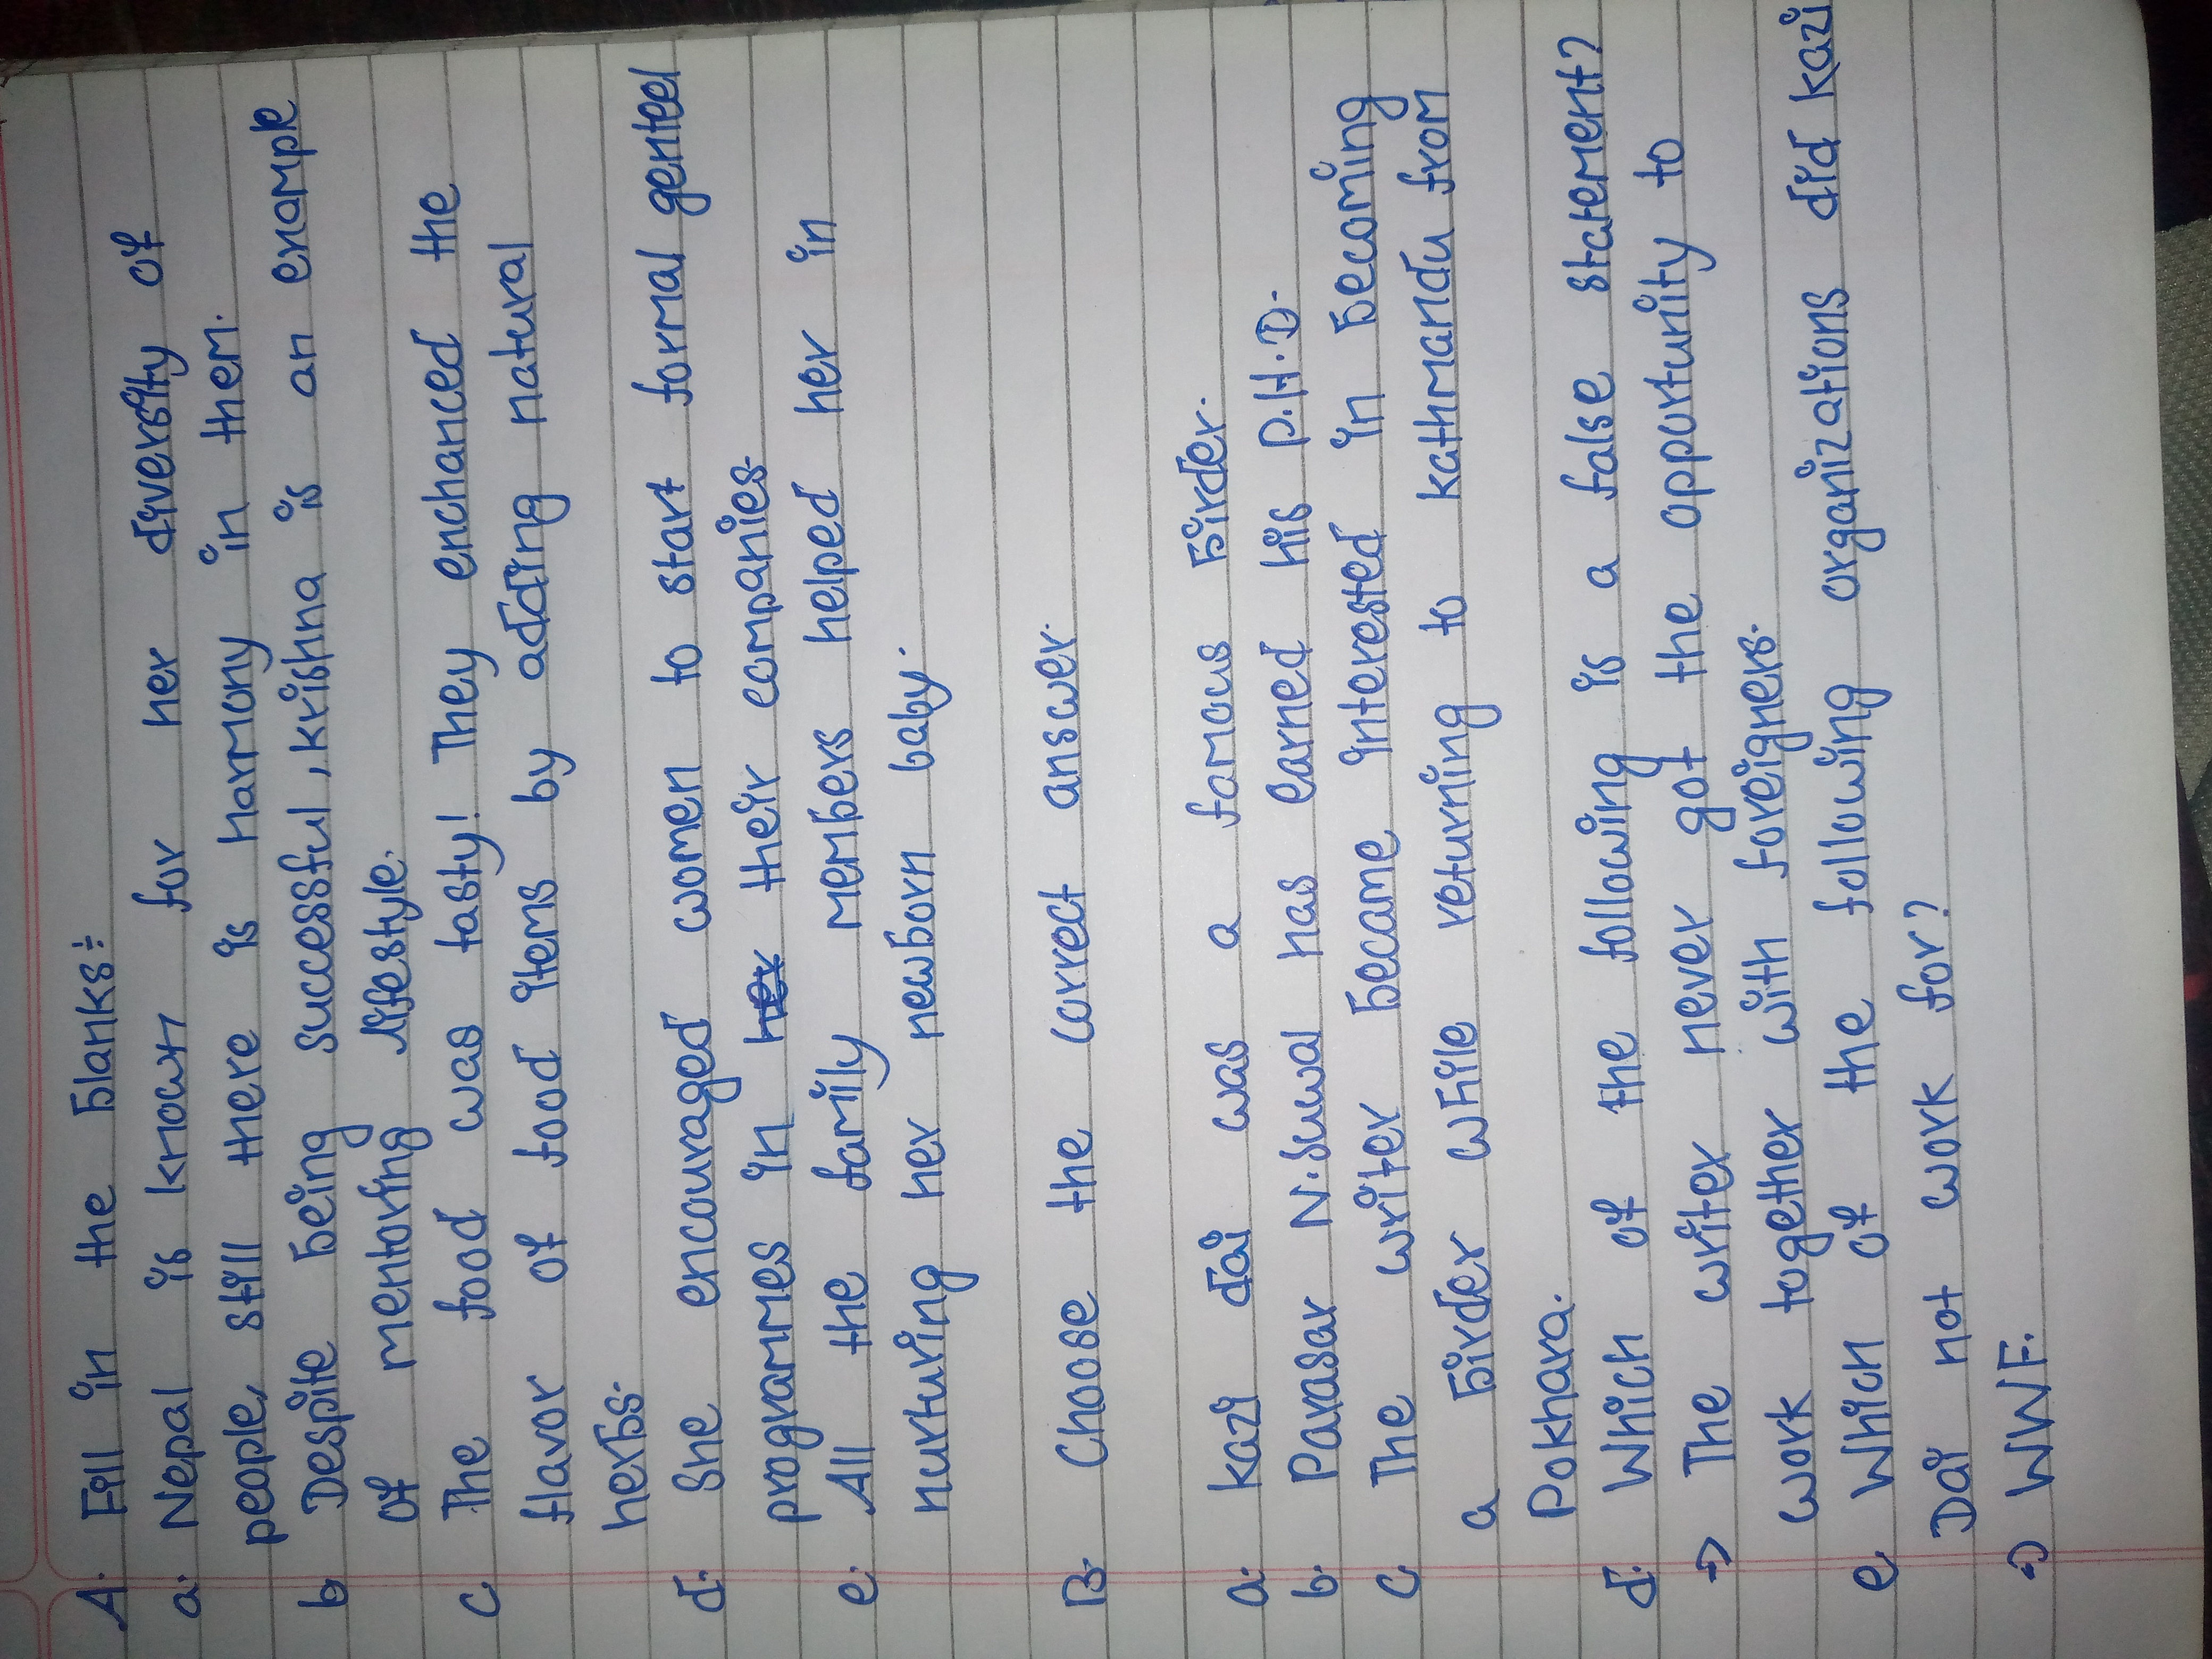 A. Fill in the blanks:
a. Nepal is known for her diversity of
people, still there is harmony in them.
b Despite being successful, krishna is an enample
of mentoring lifestyle.
c The food was tasty! They enchanced the
flavor of food items by adding natural
herbs.
d. She encouraged women to start formal genteel
programmes in their companies.
e. All the family members helped her in
nurturing her newborn baby.
B. Choose the correct answer.
a. kazi dai was a famous birder.
b. Parasar N. Suwal has earned his P.H.D.
c The writer became interested in becoming
a birder while returning to kathmandu from
Pokhara.
d. Which of the following is a false statement?
→ The writer never got the opportunity to
work together with foreigners.
e. Which of the following organizations did kazi
Dai not work for?
→ WWF.